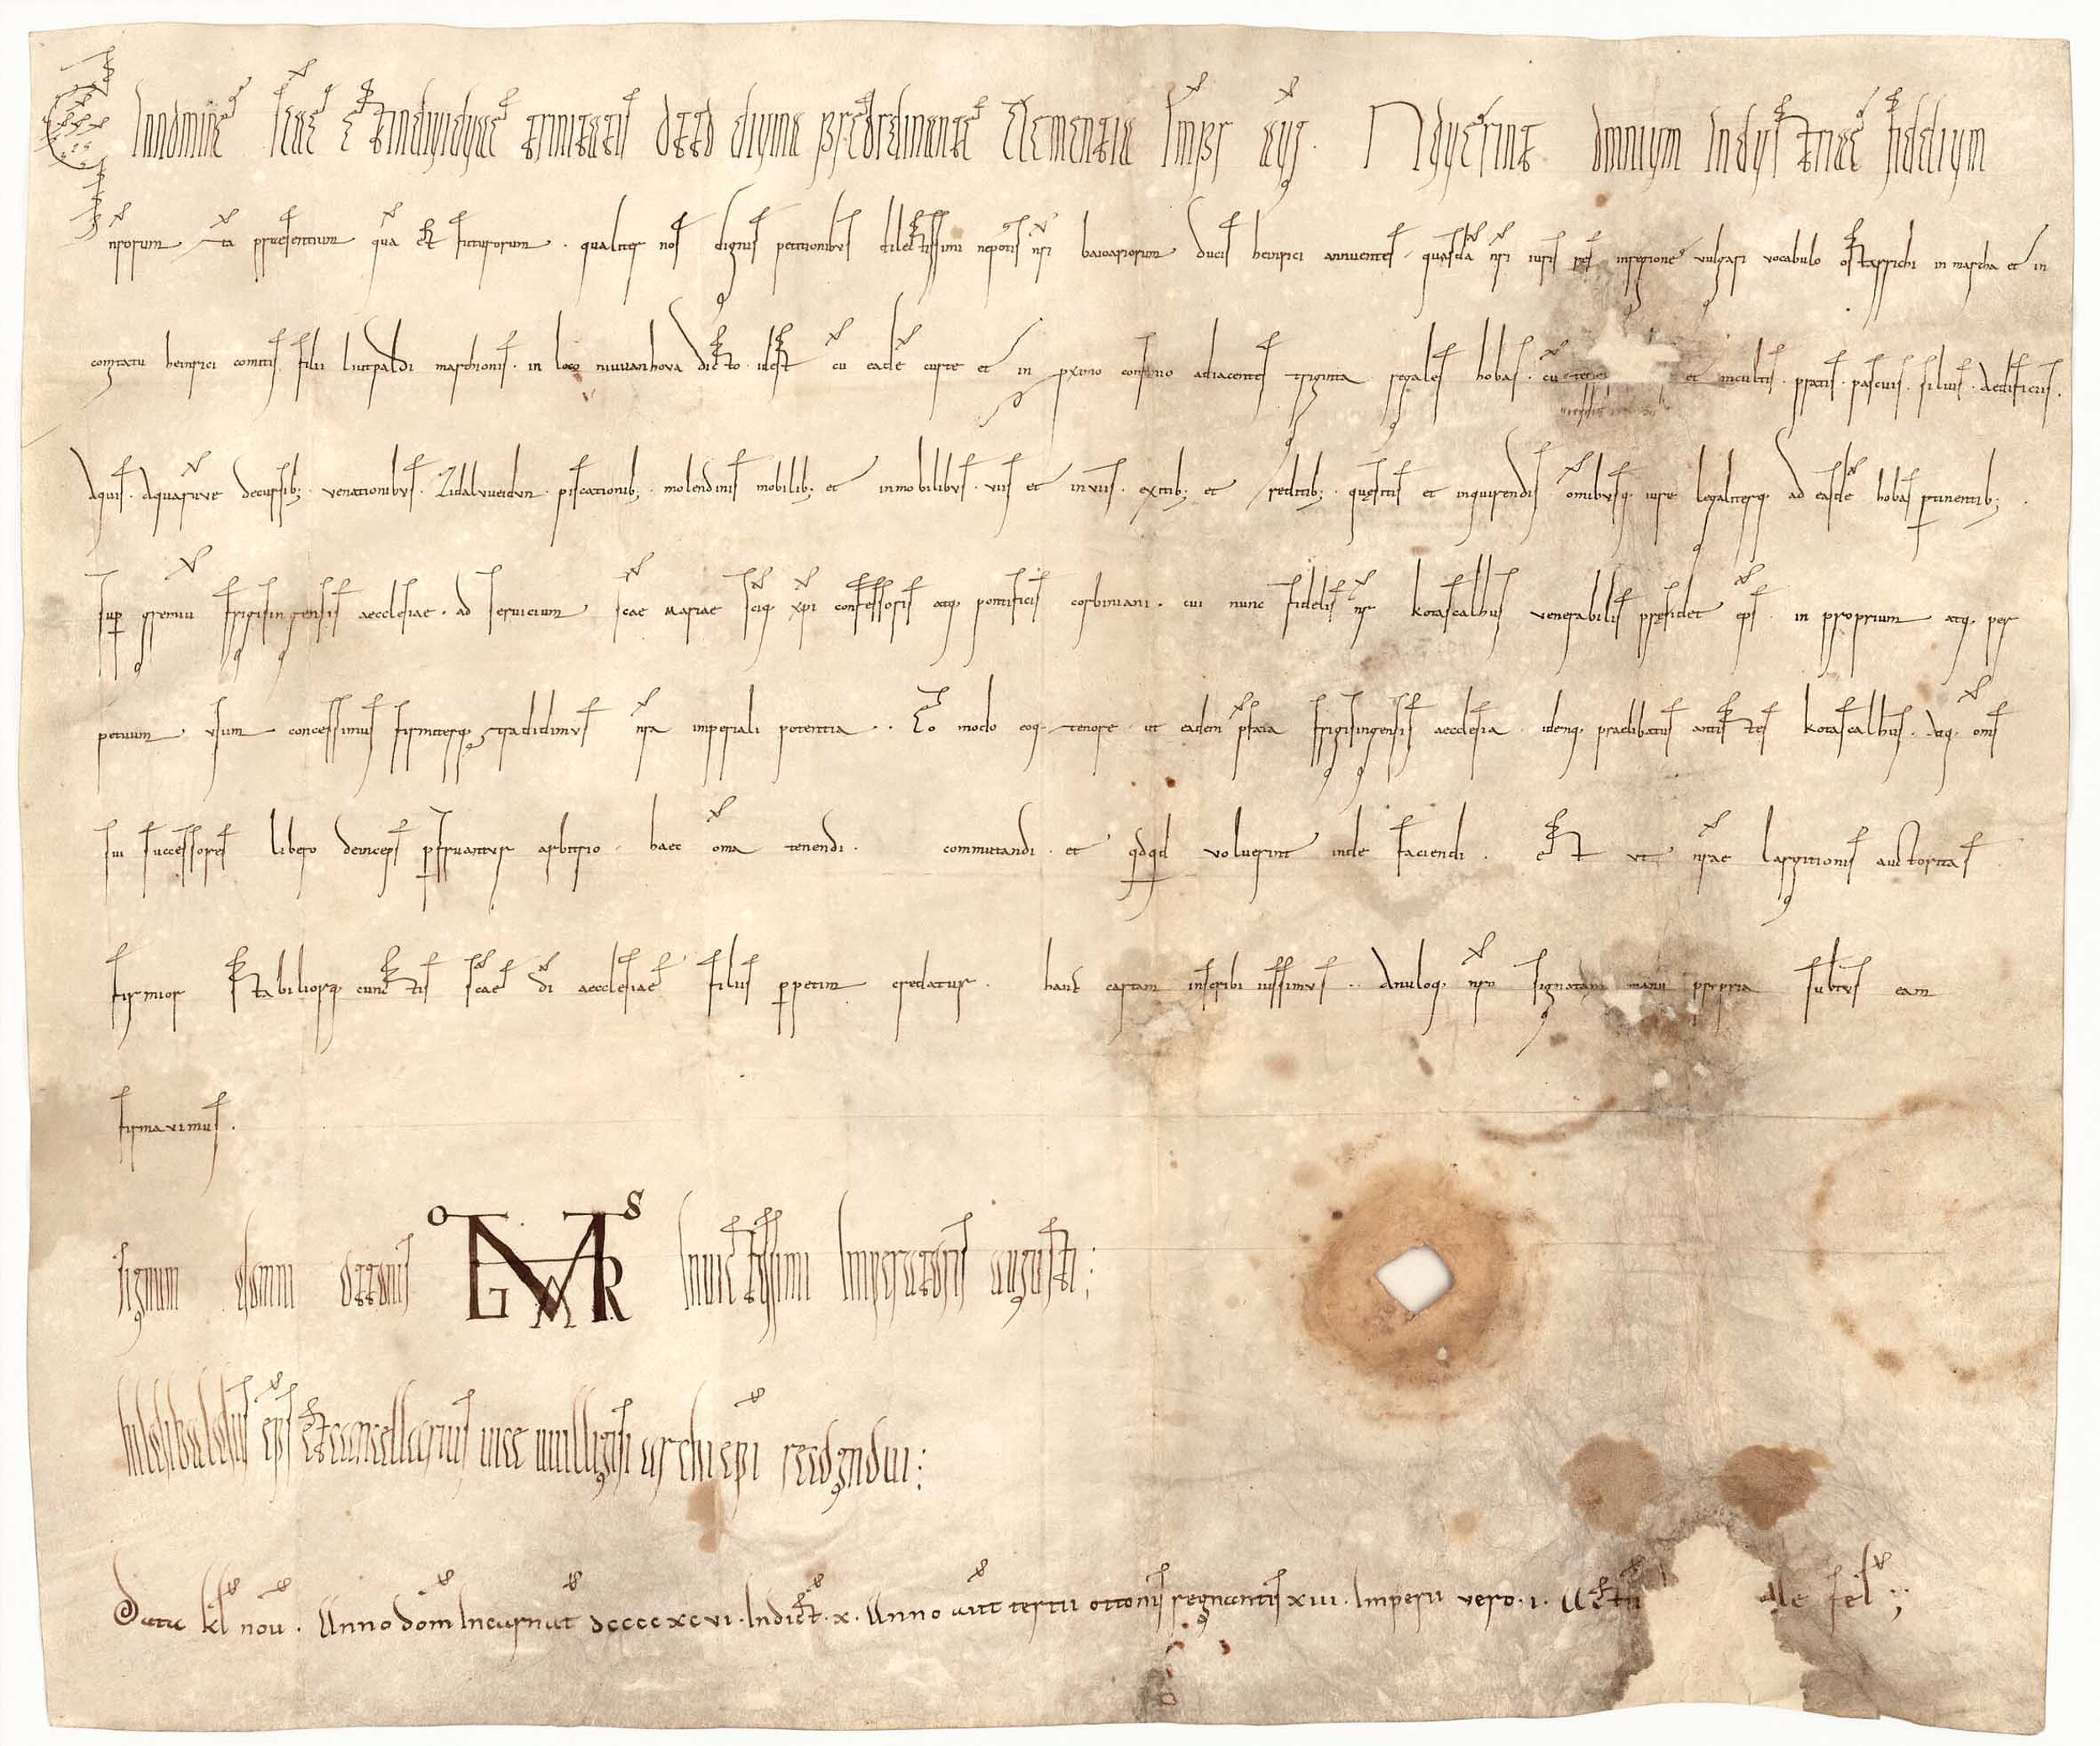 In nomine scae et individuae trinitatis Otto divina preordinante clementia imps aug. Noverint omnium industriae fidelium
nrorum ta praesentium qua et futurorum . qualiter nos dignis petitionibus dilectissimi nepotis nri baioariorum ducis heinrici annuentes . quasda nri iuris res in regione vulgari vocabulo ostarrichi in marcha et in
comitatu heinrici comitis filii liutpaldi marchionis . in loco niuuanhova dicto . id est cu eade curte et in pximo confinio adiacentes triginta regales hobas . cu terris et incultis . pratis . pascuis . silvis . aedificiis .
aquis . aquaruve decursib; . venationibus . Zidalvueidvn . piscationib; . molendinis mobilib; et inmobilibus . viis et inviis . exitib; et reditib; . quesitis et inquirendis omibusq. iure legaliterq. ad easde hobas ptinentib; .
sup gremiu frigisingensis aecclesiae . ad servicium scae mariae sciq. xpi confessoris atq. pontificis corbiniani . cui nunc fidelis nr kotascalhus venerabilis presidet eps . in proprium atq. per
petuum . usum concessimus firmiterq. tradidimus nra imperiali potentia . . Eo modo eoq. tenore ut eadem pfata frigisingensis aecclesia . idemq. praelibatus antistes kotascalhus . atq. oms
sui successores libero deinceps pfruantur arbitrio . haec oma tenendi . commutandi . et qdqd voluerint inde faciendi . Et ut nrae largitionis auctoritas
firmior stabiliorq. cunctis scae di aecclesiae filiis ppetim credatur . hanc cartam inscribi iussimus . . Anuloq. nro signatam manu propria subtus eam
firmavimus .
Signum domni ottonis O S G M A R invictissimi imperatoris augusti :
hildibaldus eps et cancellarius vice uuilligisi archiepi recognovi :
Data kl nov . Anno dom incarnat dcccc xc vi . Indict . x . Anno aut tertii ottonis regnantis xiii . Imperii vero . i . Actu ale fel :;